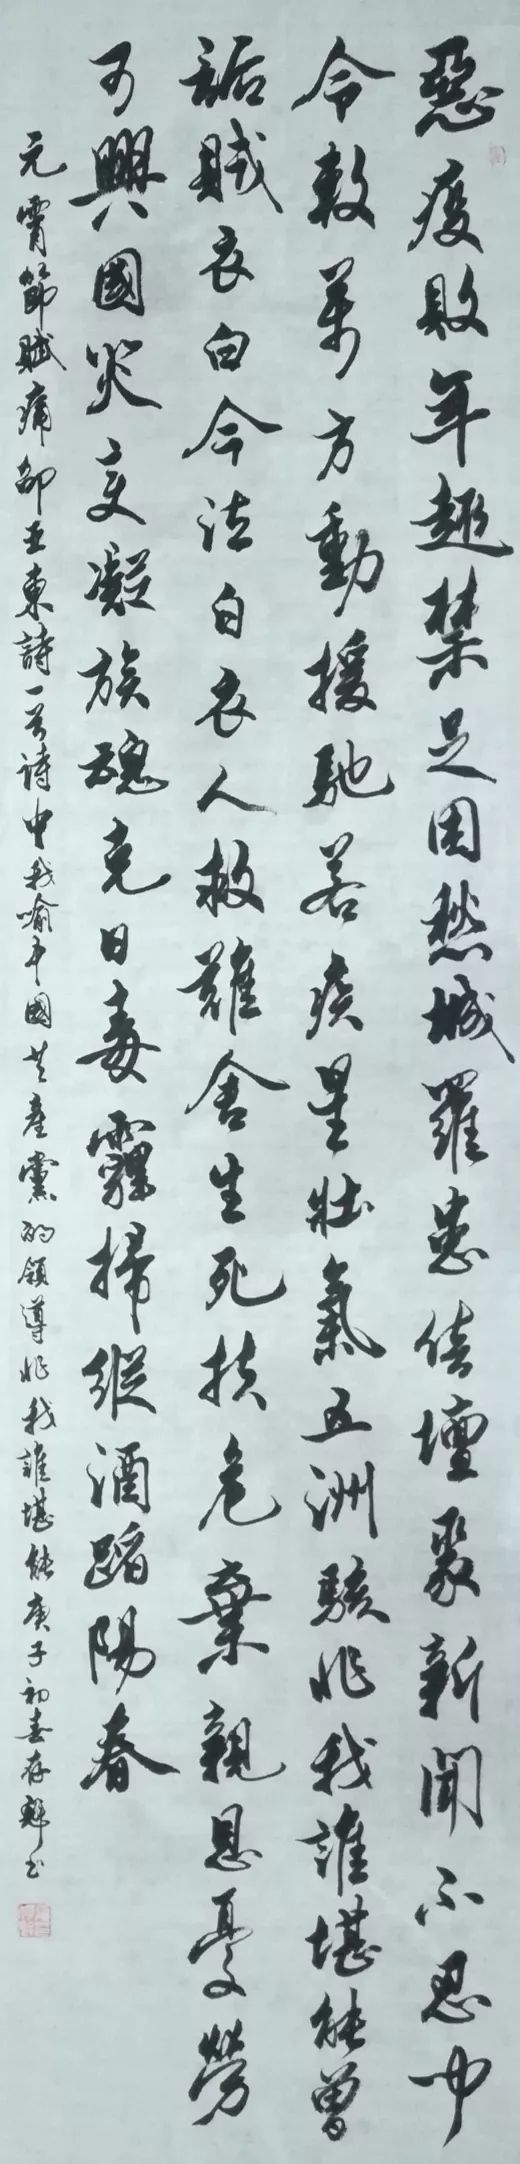 惡疫敗年趣禁足困愁城羅患傳壇聚新聞不忍聞
令敕萬方動援馳若疾星壯氣五洲駭非我誰堪能曾
詬賊衣白今法白衣人救難舍生死扶危棄親恩憂勞
可興國災變凝族魂克日毒霾掃縱酒蹈陽春
元宵節賦痛邵玉東詩一首诗中我喻中國共產黨的領導非我誰堪能庚子初春存輝书